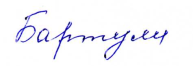 Бартули